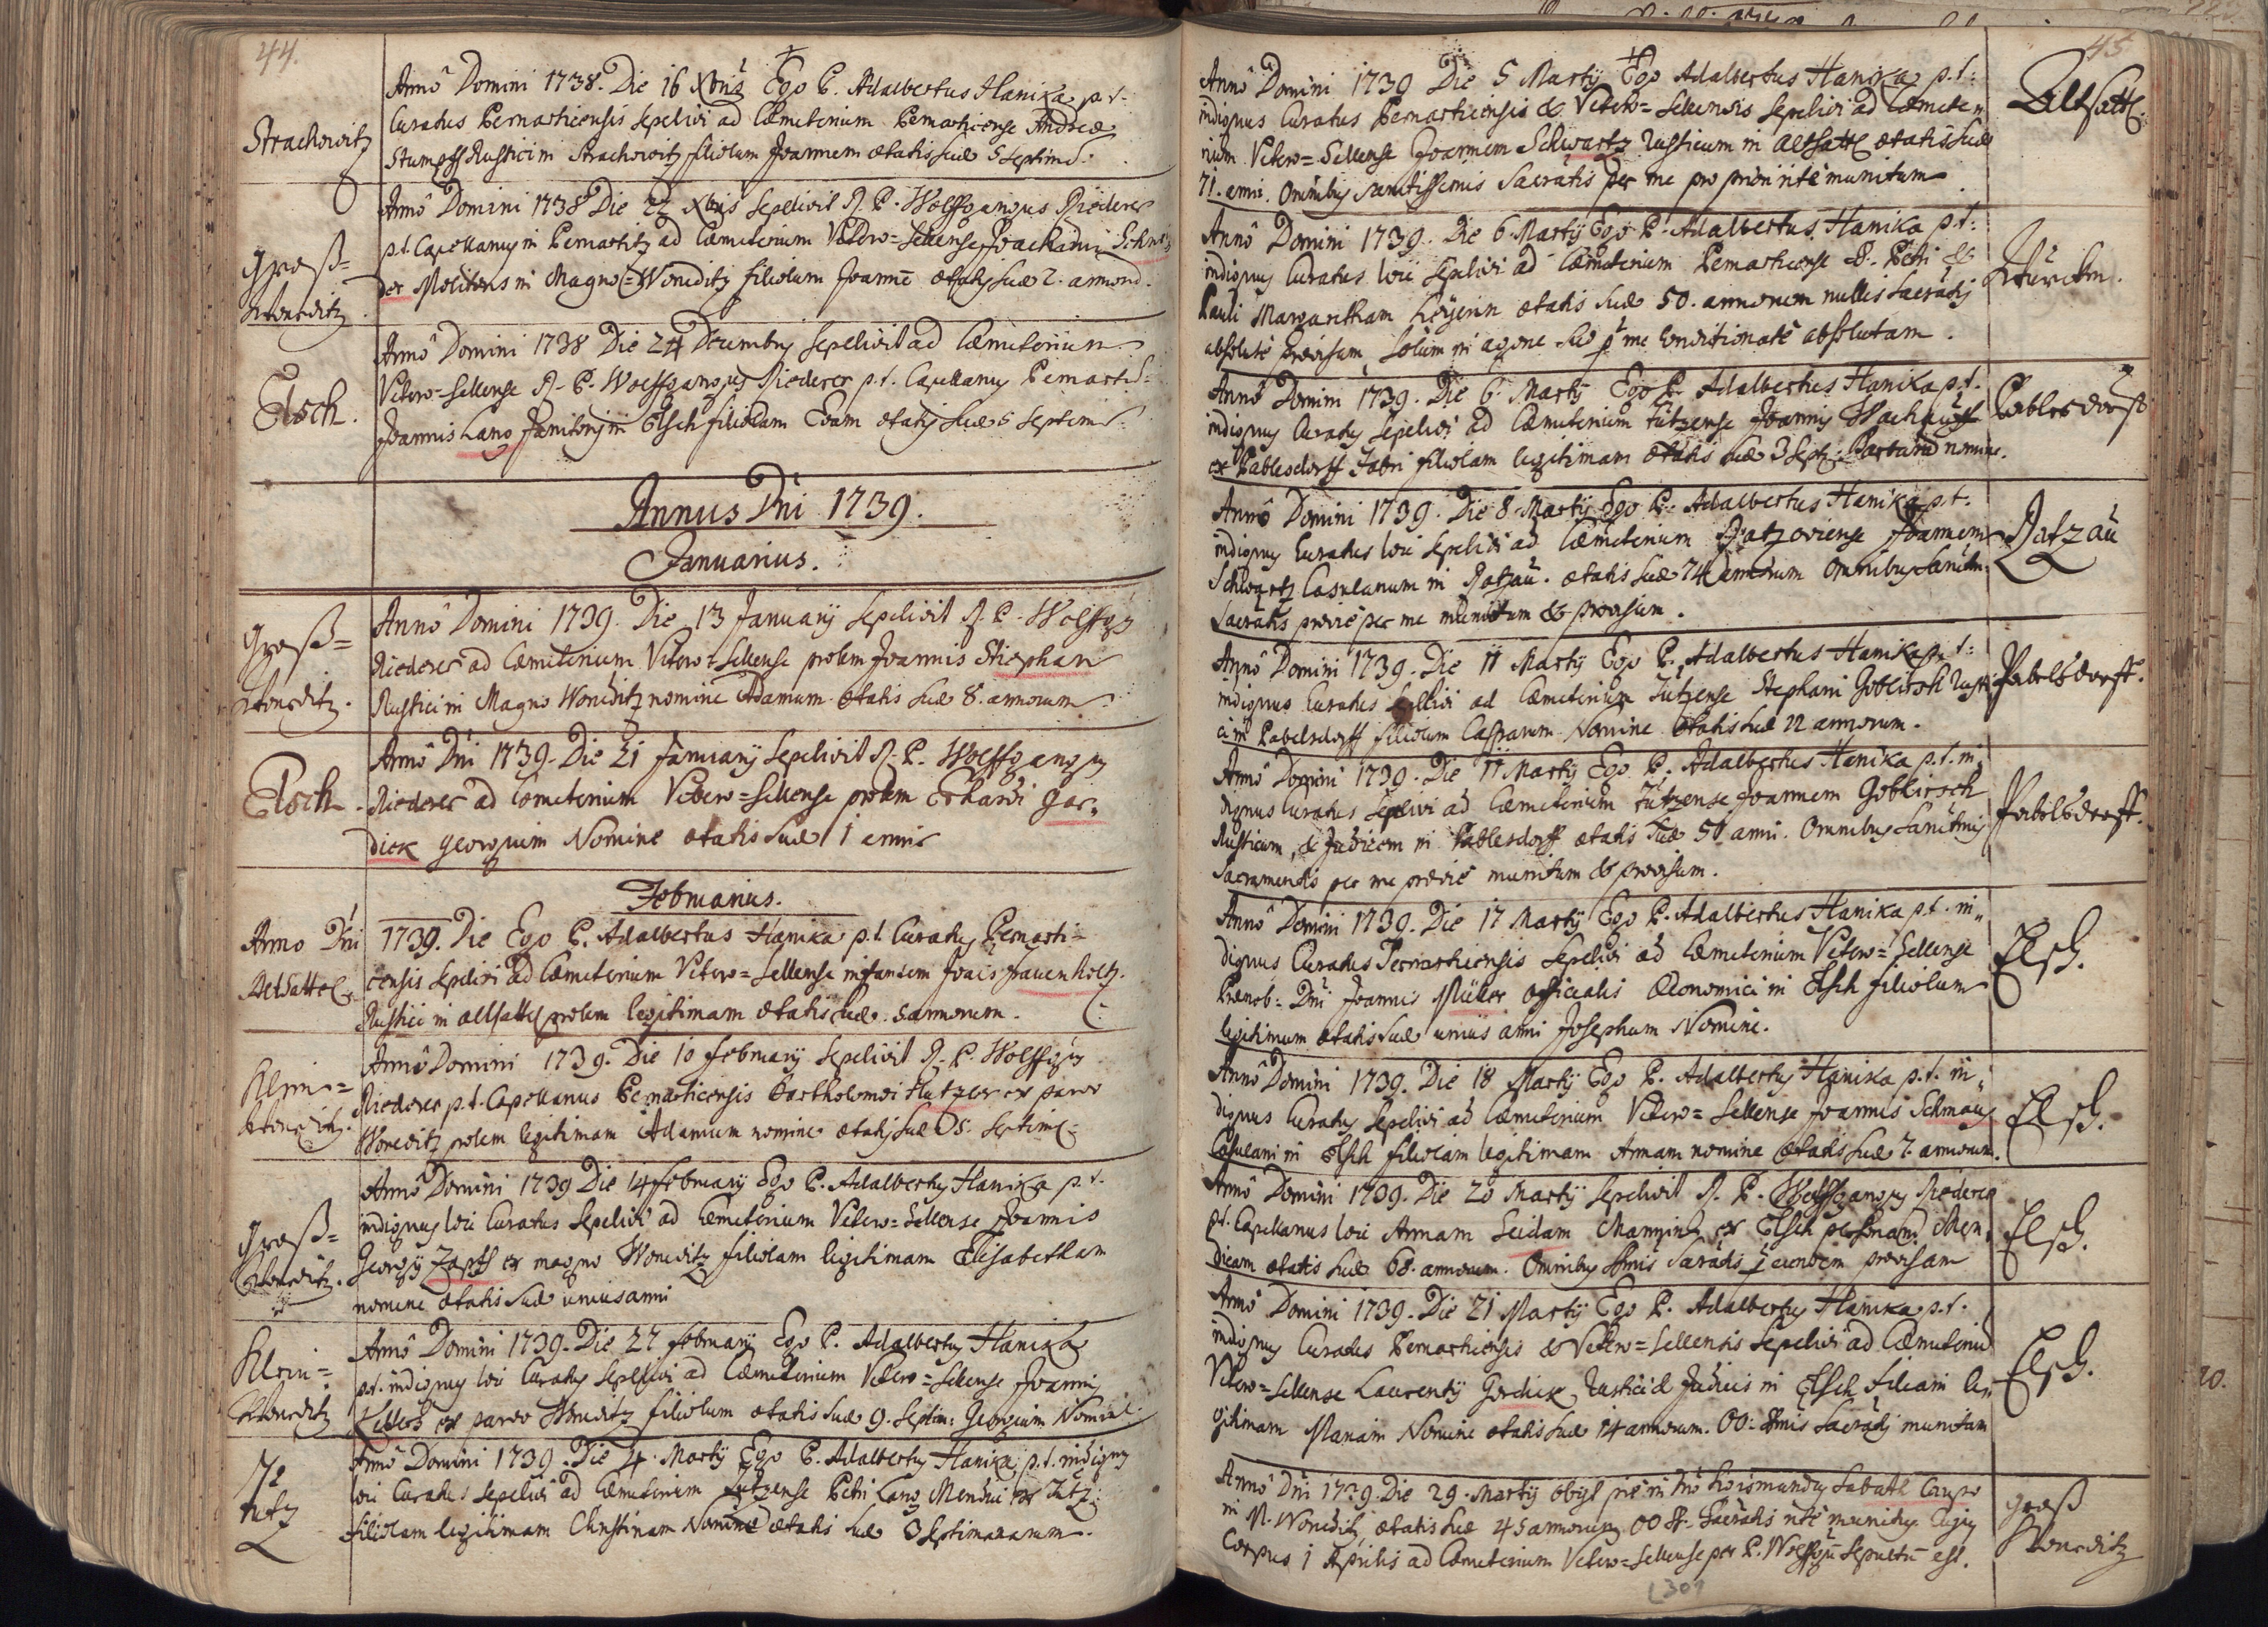 44.
Strachowitz
Anno Domini 1738. Die 16 Xbris Ego P. Adalbertus Hanika p.t.
Curatus Pernarticensis sepelivi ad Cæmeterium Pernarticense Andreæ
Stumpff Rustici in Strachowitz filiolum Joannem ætatis suæ 5 septim:
Groß=
Woneditz
Anno Domini 1738 Die 22 Xbris sepelivit R. P. Wolffgangus Riederer
p.t. Capellanus in Pernartitz ad Cæmeterium Vetero=Sellense Joachimi Schnei
der Molitoris in Magno=Woneditz filiolum Joannē ætatis suæ 2. annorū.
Elsch.
Anno Domini 1738 Die 24 Decembris sepelivit ad Cæmeterium
Vetero=Sellense R. P. Wolffgangus Riederer p.t. Capellanus Pernart:
Joannis Lang Janitoris in Elsch filiolam Evam ætatis suæ 5 septim:
Annus Dni 1739.
Januarius.
Groß=
Woneditz.
Anno Domini 1739. Die 13 January sepelivit R. P. Wolffgg
Riederer ad Cæmeterium Vetero=Sellense prolem Joannis Stiephan
Rustici in Magno Woneditz nomine Adamum ætatis suæ 8. annorum.
Elsch.
Anno Dni 1739. Die 21 January sepelivit R. P. Wolffgangus
Riederer ad Cometerium Vetero=Sellense prolem Erhardi Gor„
dick Georgium Nomine ætatis suæ 1 anni
Februarius.
Anno Dni 1739. Die Ego P. Adalbertus Hanika p.t. Curatus Pernarti=
Altsattel
censis sepelivi ad Cæmeterium Vetero=Sellense infantem Jo͞ais Frauenholtz.
Rustici in Altsattl prolem legitimam ætatis suæ 5 annorum.
Klein=
Woneditz.
Anno Domini 1739. Die 10 February sepelivit R. P. Wolffgg
Riederer p.t. Capellanus Pernarticensis Bartholomæi Hutzler ex parvo
Woneditz prolem legitimam Adamum nomine ætatis suæ 5. septim:
Groß=
Woneditz.
Anno Domini 1739 Die 14 February Ego P. Adalbertus Hanika p.t.
indignus loci Curatus sepelivi ad Cæmeterium Vetero=Sellense Joannis
Georgy Zapff ex magno Woneditz filiolam legitimam Elisabetham
nomine ætatis suæ unius anni
Klein=
Woneditz
Anno Domini 1739. Die 27 February Ego P. Adalbertus Hanika
p.t. indignus loci Curatus sepelivi ad Cæmeterium Vetero=Sellense Joannis
Kellers ex parvo Woneditz filiolum ætatis suæ 9. septim: Georgium Nomine.
Tutz
Anno Domini 1739. Die 4. Marty Ego P. Adalbertus Hanika p.t. indignus
loci Curatus sepelivi ad Cæmeterium Tutzense Petri Lang Mendici ex Tutz
filiolam legitimam Christinam Nomine ætatis suæ 3 septimanarum.
45
Anno Domini 1739 Die 5 Marty Ego Adalbertus Hanika p.t:
Altsattl.
indignus Curatus Pernarticensis & Vetero=Sellensis sepelivi ad Cæmete„
rium Vetero=Sellense Joannem Schwartz Rusticum in Altsattl ætatis suæ
71. anni. Omnibus sanctissimis Sacratis per me pro priori rite munitum.
Anno Domini 1739. Die 6 Marty Ego P. Adalbertus Hanika p.t:
indignus Curatus loci sepelivi ad Cæmeterium Pernarticense S. Petri &
Pauli Margaritham ætatis suæ 50. annorum nullis sacratis
absolute provisam, solum in agone suo p me conditionate absolutam.
Anno Domini 1739. Die 6. Marty Ego P. Adalbertus Hanika p.t.
Pablesdorff
indignus Curatus sepelivi ad Cæmeterium Tutzense Joannis
ex Pablesdorff Fabri filiolam legitimam ætatis suæ 3 sept: Barbaram nomine.
Anno Domini 1739. Die 8 Marty Ego P. Adalbertus Hanika p.t.
Ratzau
indignus Curatus loci sepelivi ad Cæmeterium Ratzoviense Joannem
Schwartz Casulanum in Ratzau. ætatis suæ 74 annorum Omnibus Sanctm:
Sacratis prævie per me munitum & provisum.
Anno Domini 1739. Die 11 Marty Ego P. Adalbertus Hanika p.t:
Pabelsdorff.
indignus Curatus sepelivi ad Cæmeterium Tutzense Stephani Goblirsch Rusti
ci in Pabelsdorff filiolum Casparum Nomine ætatis suæ 12 annorum.
Anno Domini 1739. Die 11 Marty Ego P. Adalbertus Hanika p.t. in„
dignus Curatus sepelivi ad Cæmeterium Tutzense Joannem Goblirsch
Pabelsdorff.
Rusticum, & Judicem in Pablesdorff ætatis suæ 50 anni. Omnibus Sanctmis
Sacramentis per me prævie munitum & provisum.
Anno Domini 1739. Die 17 Marty Ego P. Adalbertus Hanika p.t. in„
dignus Curatus Pernarticensis sepelivi ad Cæmeterium Vetero=Sellense
Elsch.
Prænob: Dni Joannis Müller officialis Œconomici in Elsch filiolum
legitimum ætatis suæ unius anni Josephum Nomine.
Anno Domini 1739. Die 18 Marty Ego P. Adalbertus Hanika p.t. in„
dignus Curatus sepelivi ad Cæmeterium Vetero=Sellense Joannis Schmaus
Elsch.
Casulani in Elsch filiolam legitimam Annam nomine ætatis suæ 7. annorum.
Anno Domini 1739. Die 20 Marty sepelivit R. P. Wolffgangus Riederer
p.t. Capellanus loci Annam Seidam ex Elsch personam Men„
Elsch.
dicam ætatis suæ 68. annorum. Omnibus Stmis Sacratis p eundem provisam
Anno Domini 1739. Die 21 Marty Ego P. Adalbertus Hanika p.t.
indignus Curatus Pernarticensis & Vetero=Sellensis sepelivi ad Cæmeteriū
Elsch.
Vetero=Sellense Laurenty Gordick, Rustici & Judicis in Elsch filiam le„
gitimam Mariam Nomine ætatis suæ 14 annorum. OO: Stmis Sacratis munitam
Anno Dni 1739. Die 29. Marty obijt pie in Dno Sabath
Groß
Woneditz
in M. Woneditz ætatis suæ 45 annorum OO SS. Sacratis rite munitus. Cujus
Corpus 1 Aprilis ad Cæmeterium Vetero=Sellense per P. Wolffgg sepultū est.